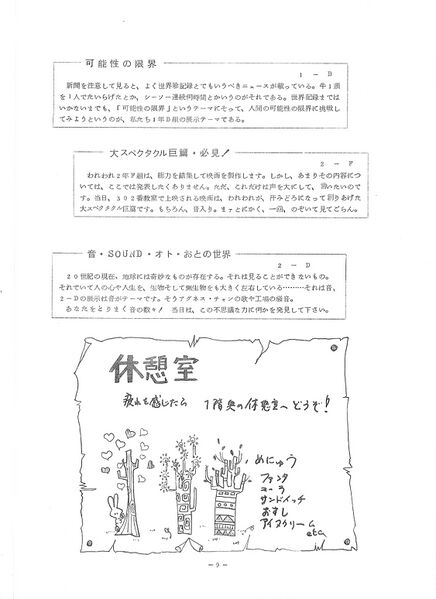 可能性の限界
1-B
新聞を注意して見ると、よく世界珍記録とでもいうべきニュースが載っている。牛1頭
を1人でたいらげたとか、シーソー連続何時間とかいうのがそれである。世界記録までは
いかないまでも、『可能性の限界』というテーマにそって、人間の可能性の限界に挑戦し
てみようというのが、私たち1年B組の展示テーマである。
大スペクタクル巨篇・必見!
2-F
われわれ2年F組は、総力を結集して映画を製作します。しかし、あまりその内容につ
いては、ここでは発表したくありません。ただ、これだけは声を大にして、言いたいので
す。当日、302番教室で上映される映画は、われわれが、汗みどろになって創りあげた
大スペクタクル巨篇です。もちろん、音入り。まァとにかく、一回、のぞいて見てごらん。
音・SOUND・オト・おとの世界
2-D
20世紀の現在、地球には奇妙なものが存在する。それは見ることができないもの。
それでいて人の心や人生を、生物そして無生物をも大きく左右している………それは音、
2-Dの展示は音がテーマです。そうアグネス・チャンの歌や工場の騒音。
あなたをとりまく音の数々! 当日は、この不思議な力に何かを発見して下さい。
休憩室
疲れを感じたら 1階奥の休憩室へどうぞ!
めにゅう
ファンタ
コーラ
サンドイッチ
おすし
アイスクリーム
etc.
-9-